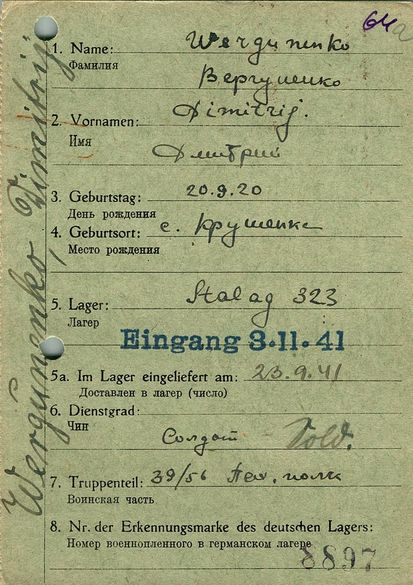 64a
1. Name: Wergunenko
Фамилия
Вергуненко
2. Vornamen: Dimitrij.
Имя
Дмитрий
3. Geburtstag: 20.9.20
День рождения
4. Geburtsort: с. Крушенка
Место рождения
5. Lager: Stalag 323
Лагер
Eingang 3.11.41
5a. Im Lager eingeliefert am: 23.9.41
Доставлен в лагер (число)
6. Dienstgrad:
Чин
Солдат Sold.
7. Truppenteil: 39/56 полк
Воинская часть
8. Nr. der Erkennungsmarke des deutschen Lagers:
Номер военнопленного в германском лагере
8897
Wergunenko, Dimitrij